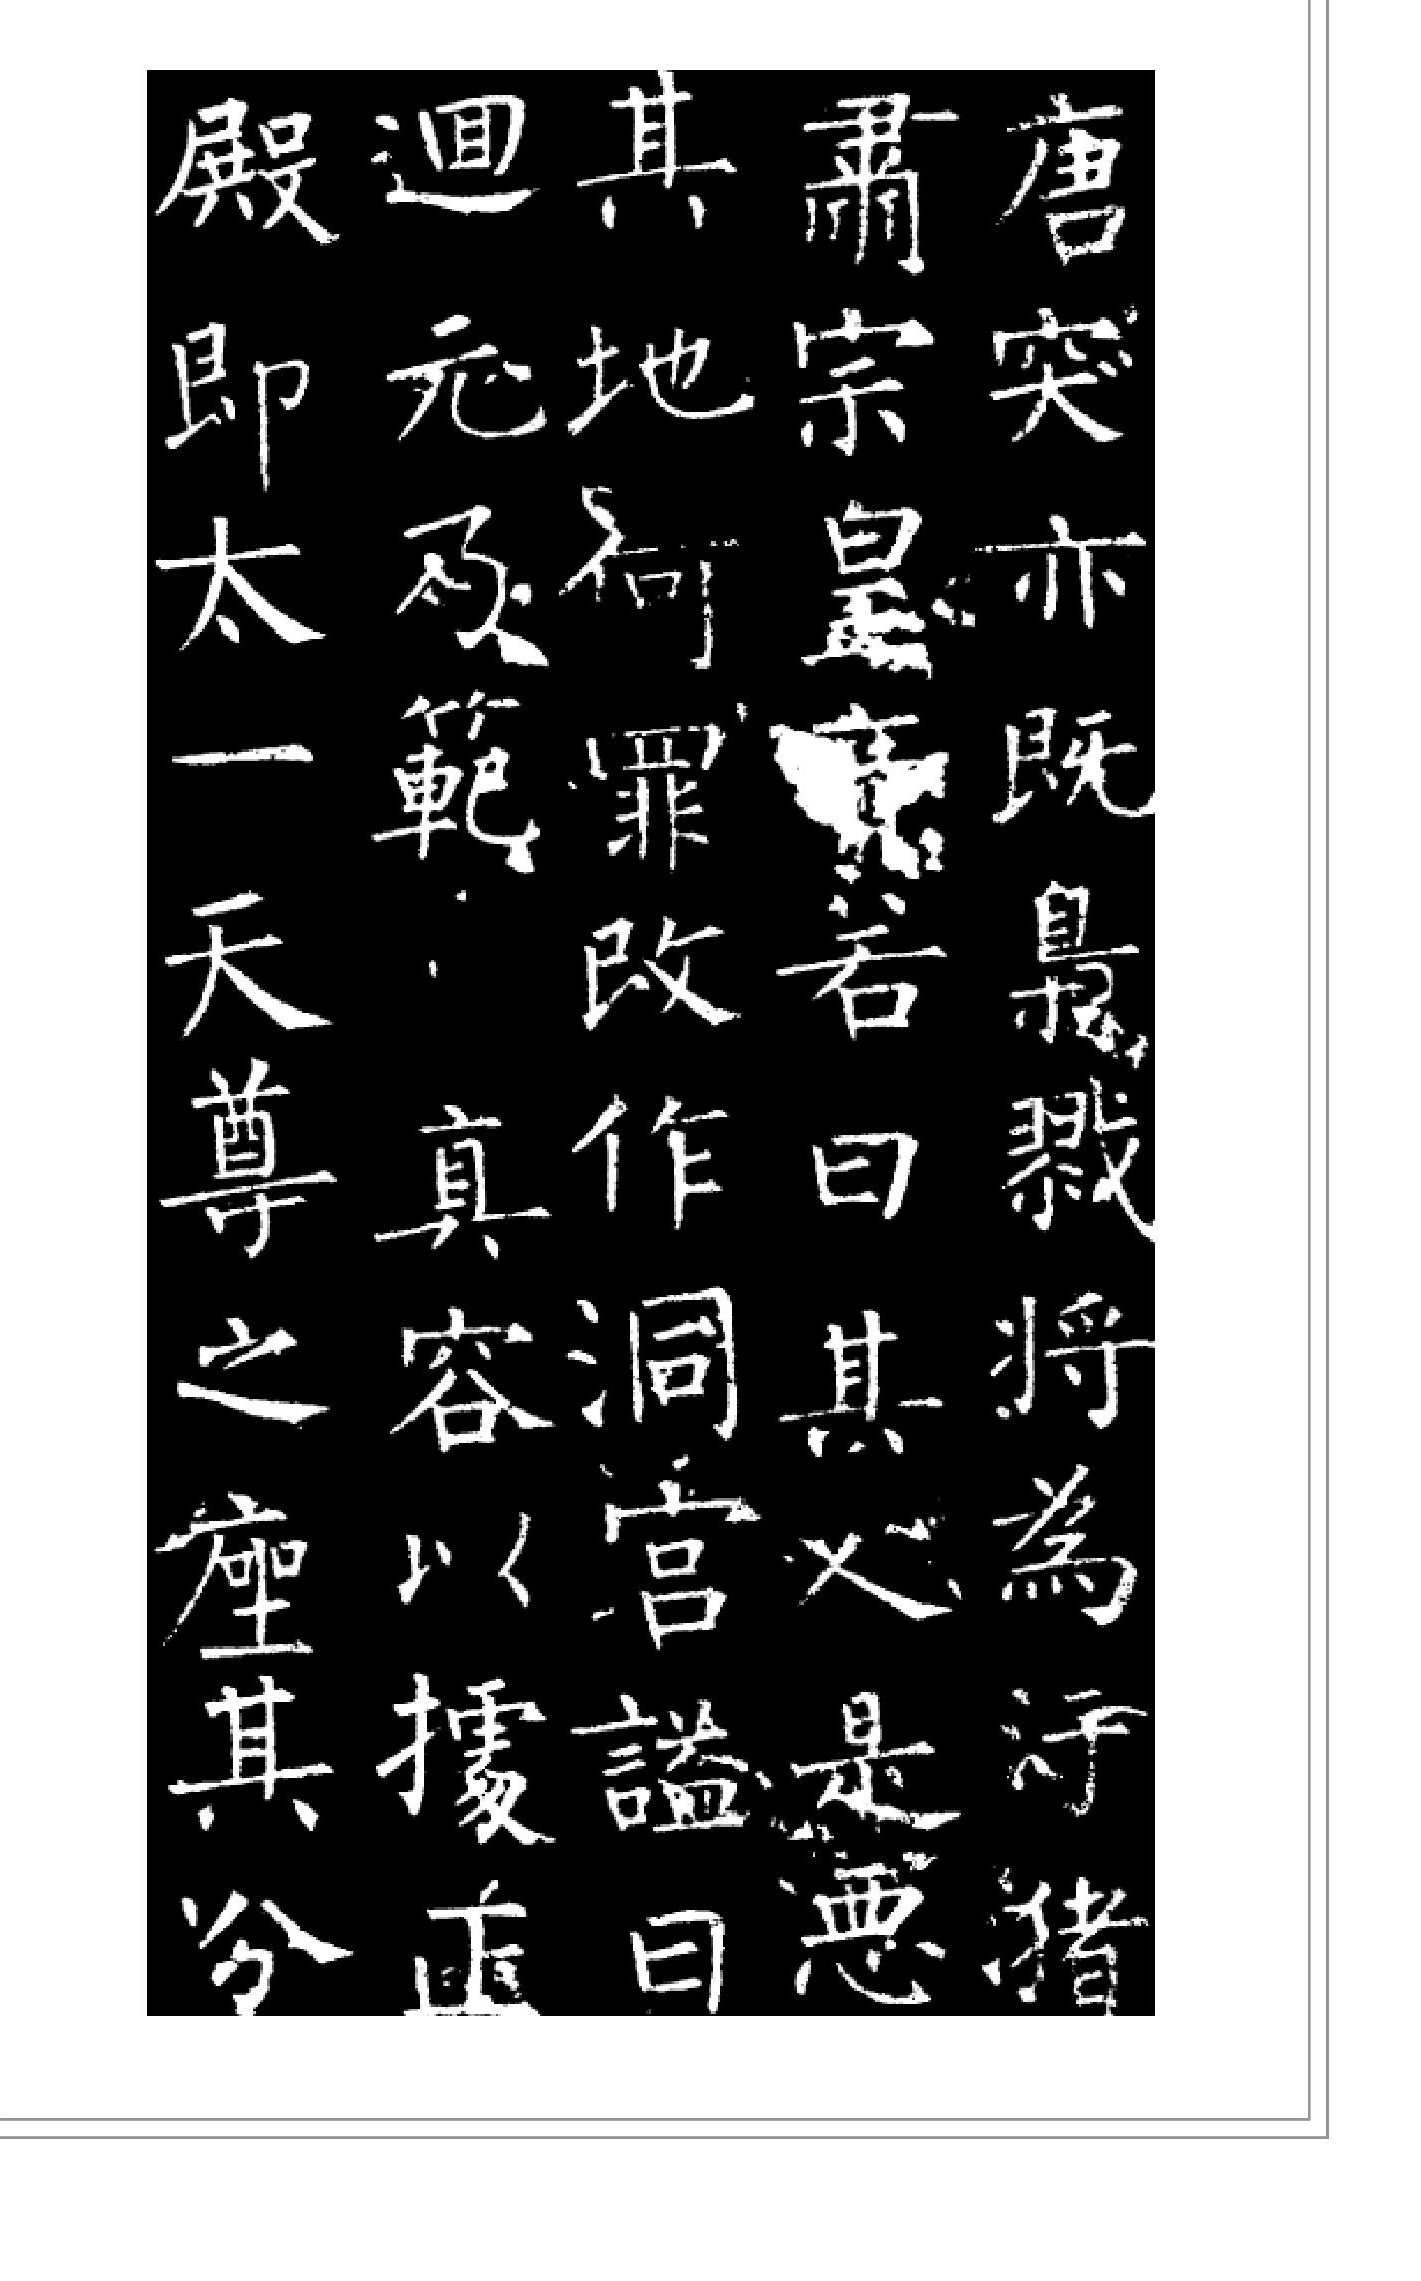 唐突亦既梟戮将為汙猪
肅宗皇若曰其人是悪
其地何罪改作洞宮謚曰
迴元乃範真容以據正
殿即太一天尊之座其分